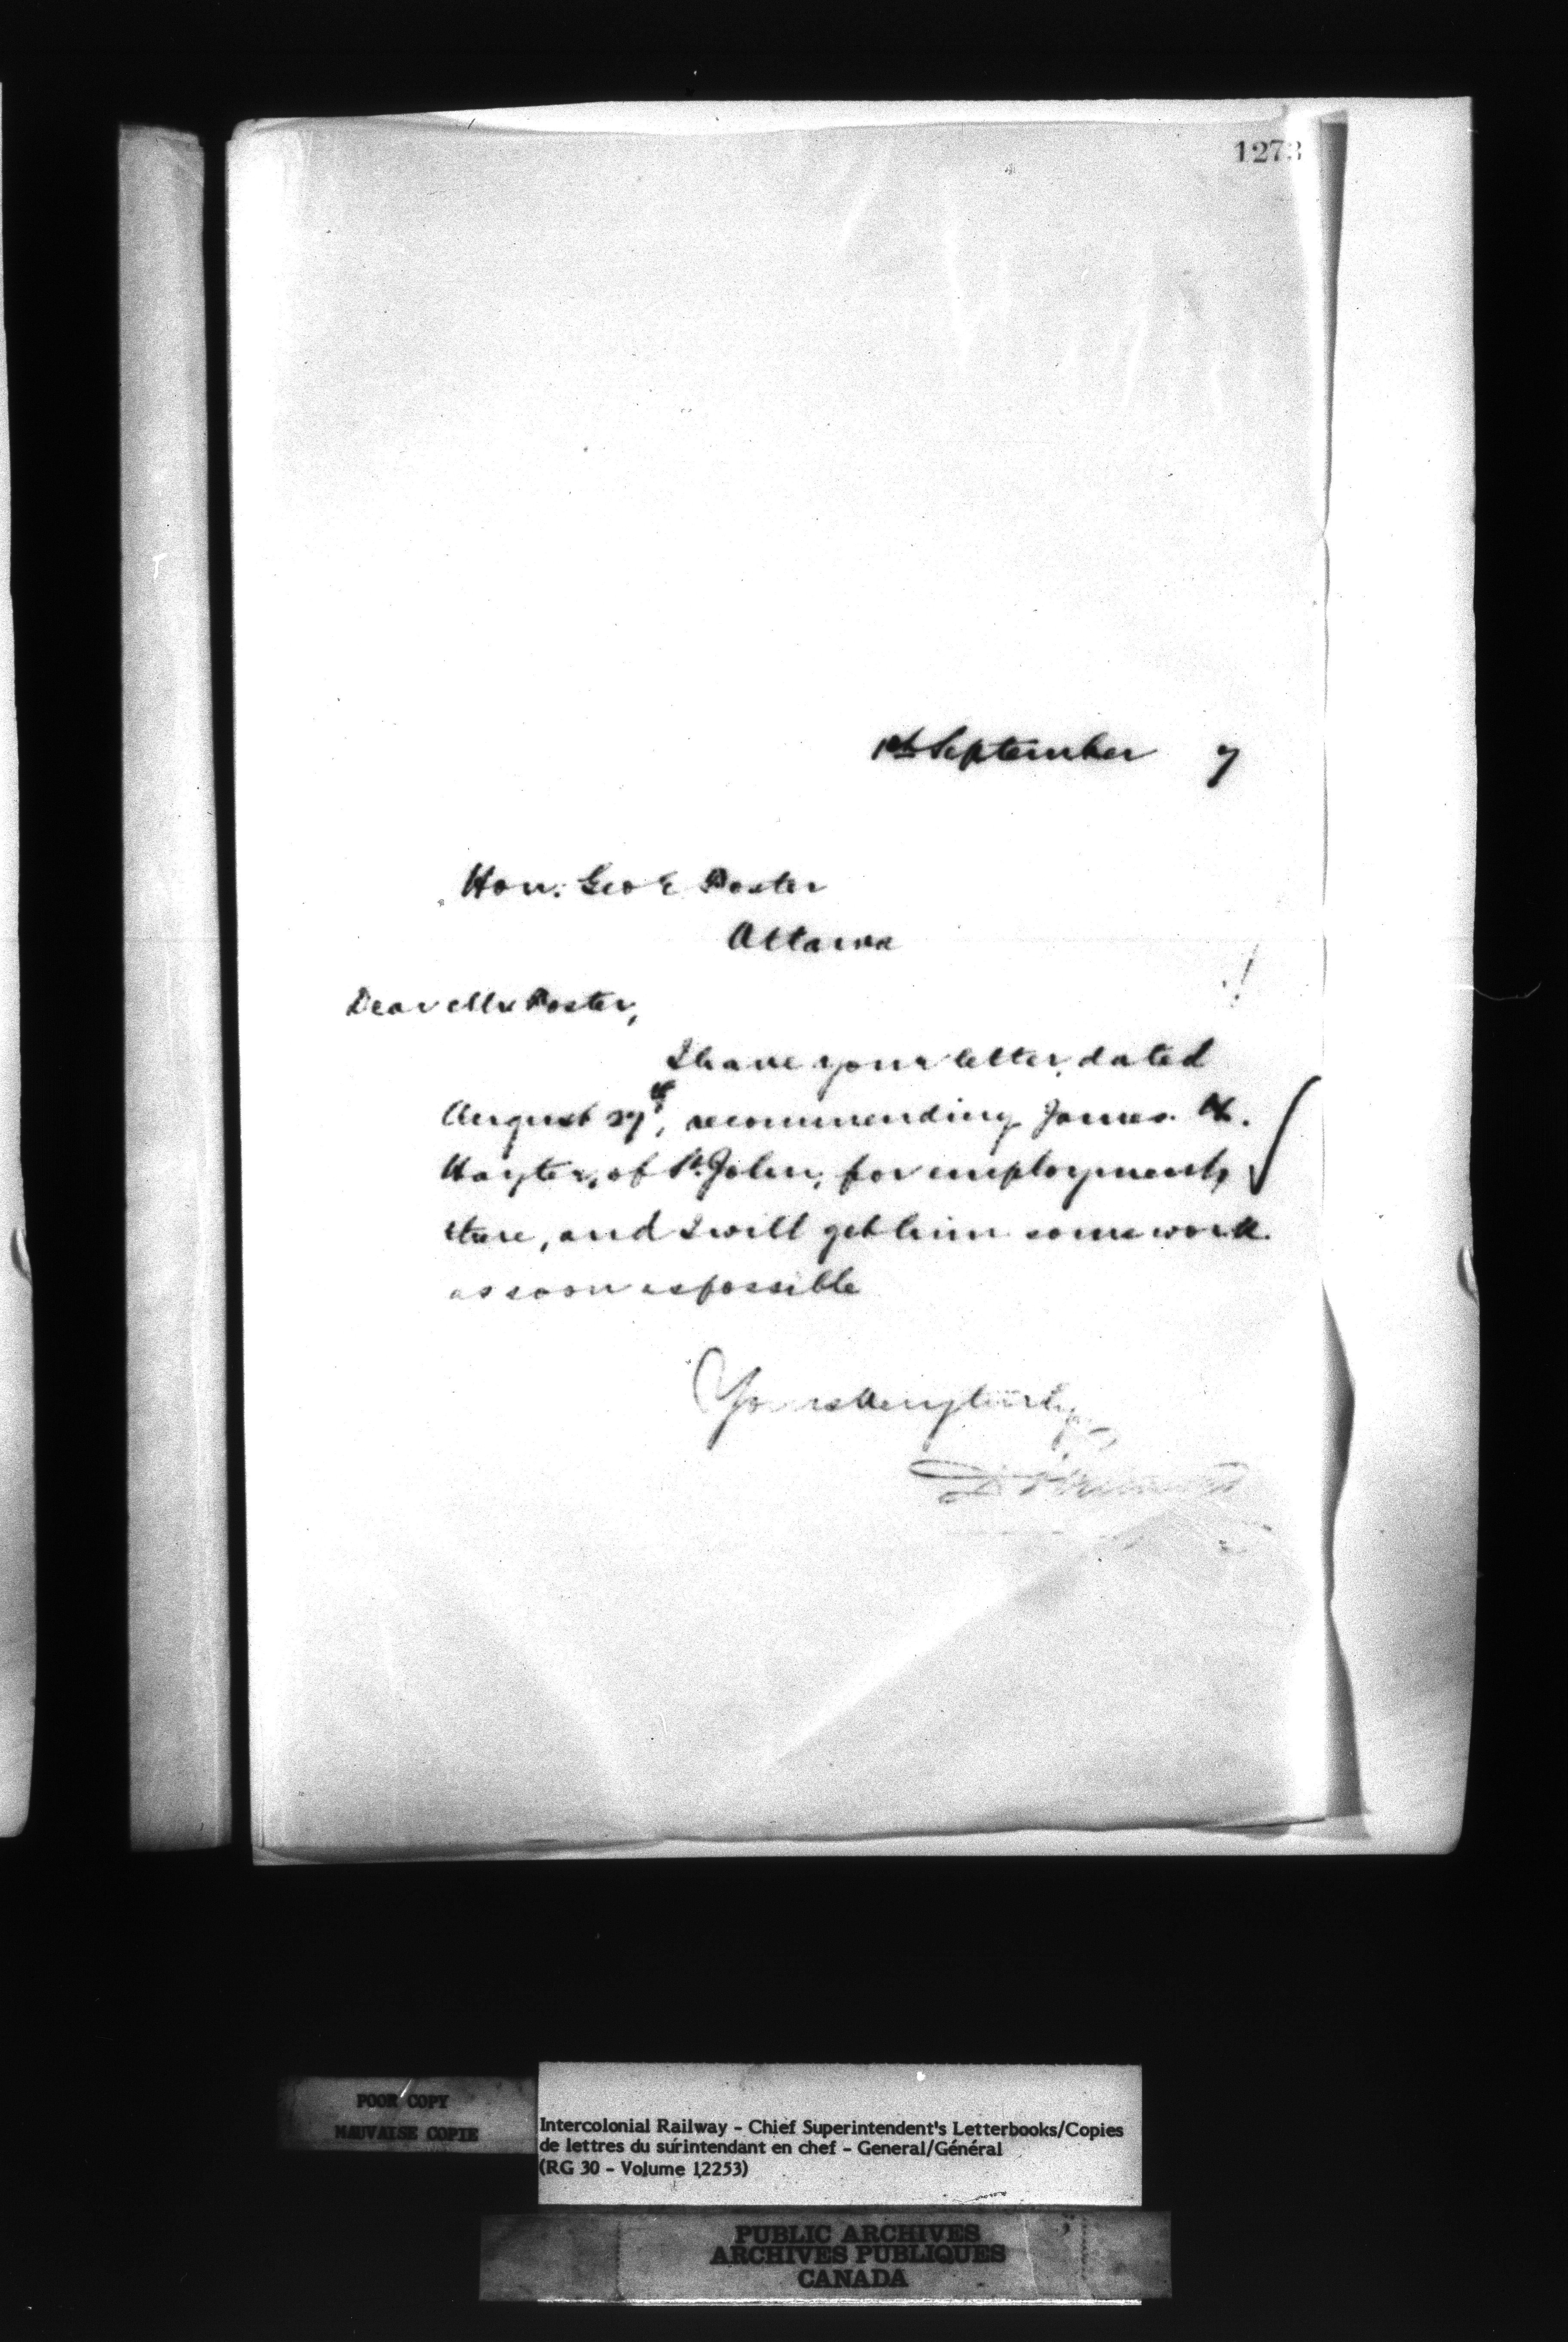 1273
1st September 7
Hon. Geo E Foster
Ottawa
Dear Mr Foster,
I have your letter, dated
August 27th, recommending James H.
Hayter, of St. John, for employment,
there, and I will get him some work
as soon as possible
Yours very truly
POOR COPY
MAUVAISE COPIE
Intercolonial Railway - Chief Superintendent's Letterbooks/Copies
de lettres du surintendant en chef - General/Général
(RG 30 - Volume 12253)
PUBLIC ARCHIVES
ARCHIVES PUBLIQUES
CANADA